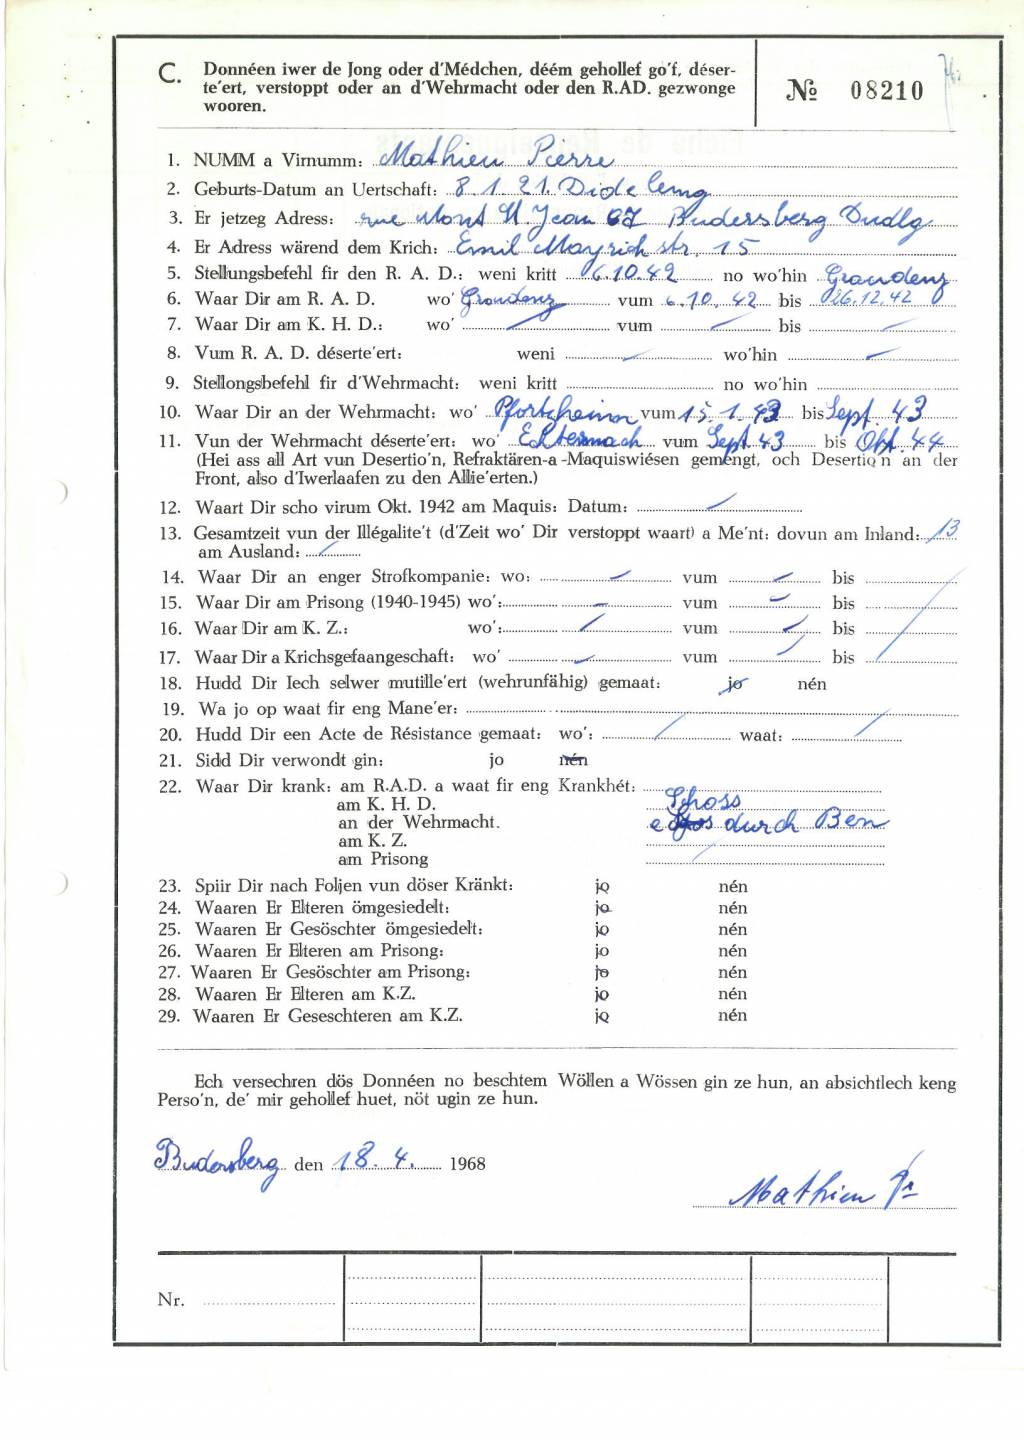 C. Donnéen iwer de Jong oder d'Médchen, déém gehollef go'f, déser-
te'ert, verstoppt oder an d'Wehrmacht oder den R.AD. gezwonge
wooren.
№ 08210
1. NUMM a Virnumm: Mathieu Pierre
2. Geburts-Datum an Uertschaft: 8.1.21. Dideleng
3. Er jetzeg Adress: rue Mont St. Jean 67 Budersberg Dudlg
4. Er Adress wärend dem Krich: Emil Mayrich str. 15
5. Stellungsbefehl fir den R. A. D.: weni kritt 6.10.42 no wo'hin Graudenz
6. Waar Dir am R. A. D. wo' Graudenz vum 6.10.42 bis 26.12.42
7. Waar Dir am K. H. D.: wo' vum bis
8. Vum R. A. D. déserte'ert: weni wo'hin
9. Stellongsbefehl fir d'Wehrmacht: weni kritt no wo'hin
10. Waar Dir an der Wehrmacht: wo' Pfortzheim vum 15.1.43 bis Sept. 43
11. Vun der Wehrmacht déserte'ert: wo' Echternach vum Sept 43 bis Okt. 44
(Hei ass all Art vun Desertio'n, Refraktären-a-Maquiswiésen gemengt, och Desertio'n an der
Front, also d'Iwerlaafen zu den Allie'erten.)
12. Waart Dir scho virum Okt. 1942 am Maquis: Datum:
13. Gesamtzeit vun der Illégalite't (d'Zeit wo' Dir verstoppt waart) a Me'nt: dovun am Inland: 13
am Ausland:
14. Waar Dir an enger Strofkompanie: wo: vum bis
15. Waar Dir am Prisong (1940-1945) wo': vum bis
16. Waar Dir am K. Z.: wo': vum bis
17. Waar Dir a Krichsgefaangeschaft: wo' vum bis
18. Hudd Dir Iech selwer mutille'ert (wehrunfähig) gemaat: jo nén
19. Wa jo op waat fir eng Mane'er:
20. Hudd Dir een Acte de Résistance gemaat: wo': waat:
21. Sidd Dir verwondt gin: jo nén
22. Waar Dir krank: am R.A.D. a waat fir eng Krankhét:
am K. H. D. Schoss
an der Wehrmacht. durch Ben
am K. Z.
am Prisong
23. Spiir Dir nach Foljen vun döser Kränkt: jo nén
24. Waaren Er Elteren ömgesiedelt: jo nén
25. Waaren Er Gesöschter ömgesiedelt: jo nén
26. Waaren Er Elteren am Prisong: jo nén
27. Waaren Er Gesöschter am Prisong: jo nén
28. Waaren Er Elteren am K.Z. jo nén
29. Waaren Er Geseschteren am K.Z. jo nén
Ech versechren dös Donnéen no beschtem Wöllen a Wössen gin ze hun, an absichtlech keng
Perso'n, de' mir gehollef huet, nöt ugin ze hun.
Budersberg den 18.4. 1968
Mathieu Pr
Nr.